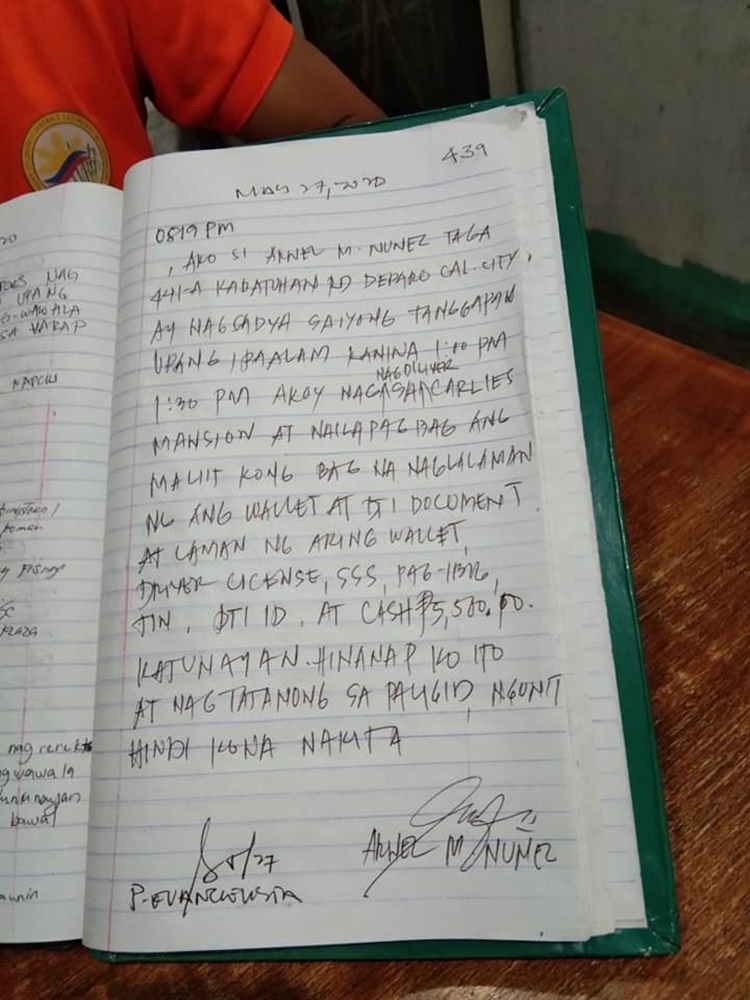 439
MAY 27, 2020
0819 PM
, AKO SI ARNEL M. NUNEZ TAGA
441-A KABATUHAN RD DEPARO CAL. CITY,
AY NAGSADYA SAIYONG TANGGAPAN
UPANG IPAALAM KANINA 1:00 PM
NAGDILIVER
1:30 PM AKOY NAGA SAA CARLIES
MANSION AT NAILAPAG BAG ANG
MALIIT KONG BAG NA NAGLALAMAN
NG ANG WALLET AT DTI DOCOMENT.
AT LAMAN NG AKING WALLET,
DRIVER LICENSE, SSS, PAG-IBIG,
TIN, DTI ID. AT CASH ₱5,500.00.
KATUNAYAN. HINANAP KO ITO
AT NAGTATANONG SA PALIGID, NGUNIT
HINDI KONA NAKITA
5/27
P. EVANGELISTA
ARNEL M NUÑEZ
20
NAG
UPANG
G-WAWALA
SA HARAP
PLAZA
bawal